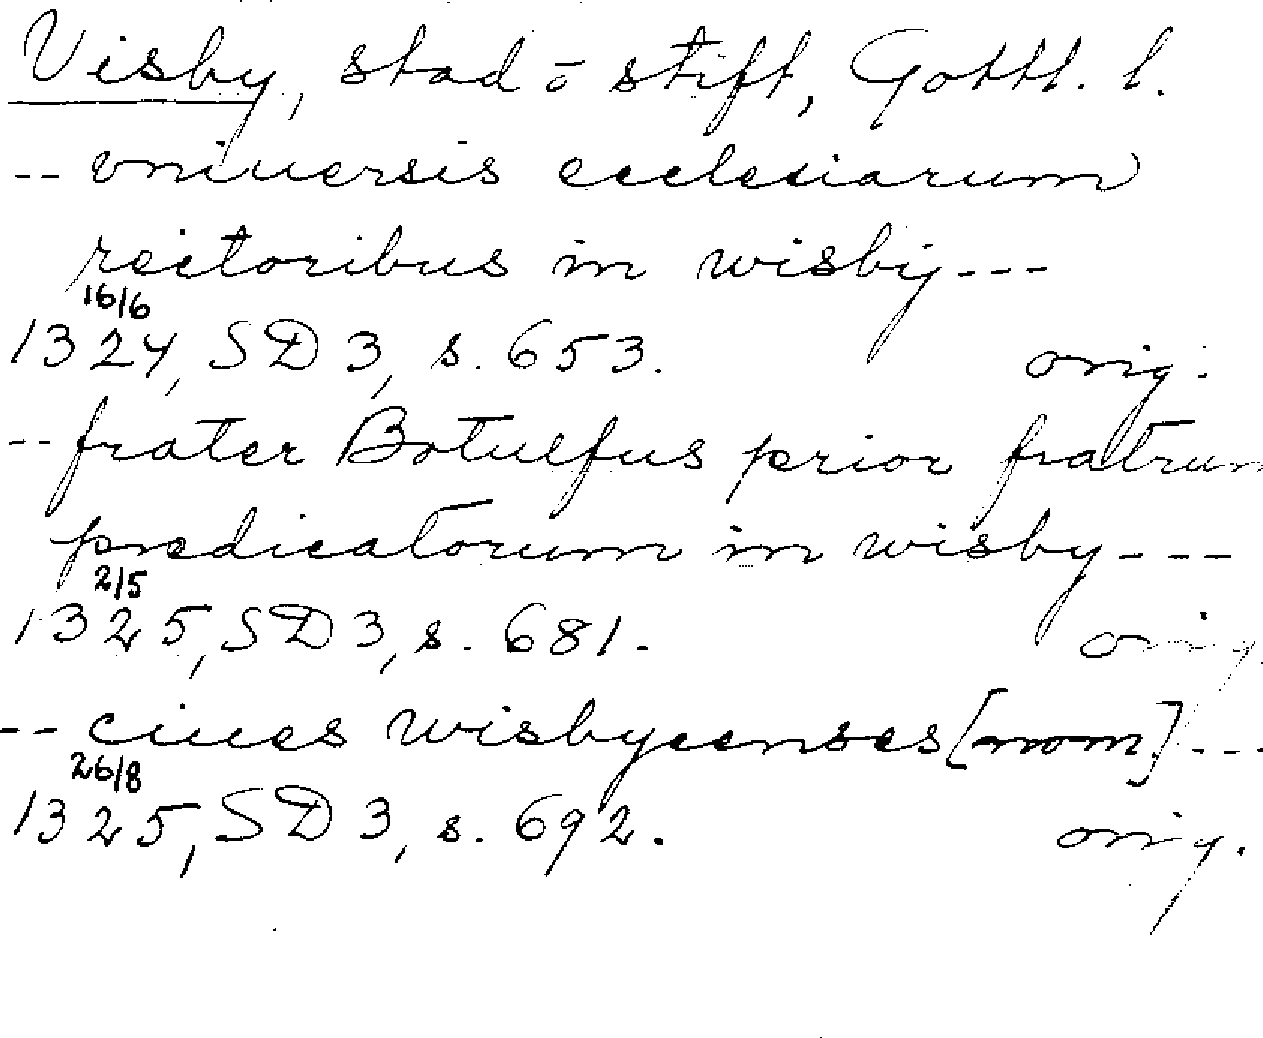 Visby, stad o stift, Gottl. l.
-- vniuersis ecclesiarum
rectoribus in wisby---
16/6
1324, SD 3, s. 653. orig.
-- frater Botulfus prior fratrum
predicatorum in wisby---
2/5
1325, SD 3, s. 681. orig.
-- ciues wisbycenses [nom] ---
26/8
1325, SD 3, s. 692. orig.